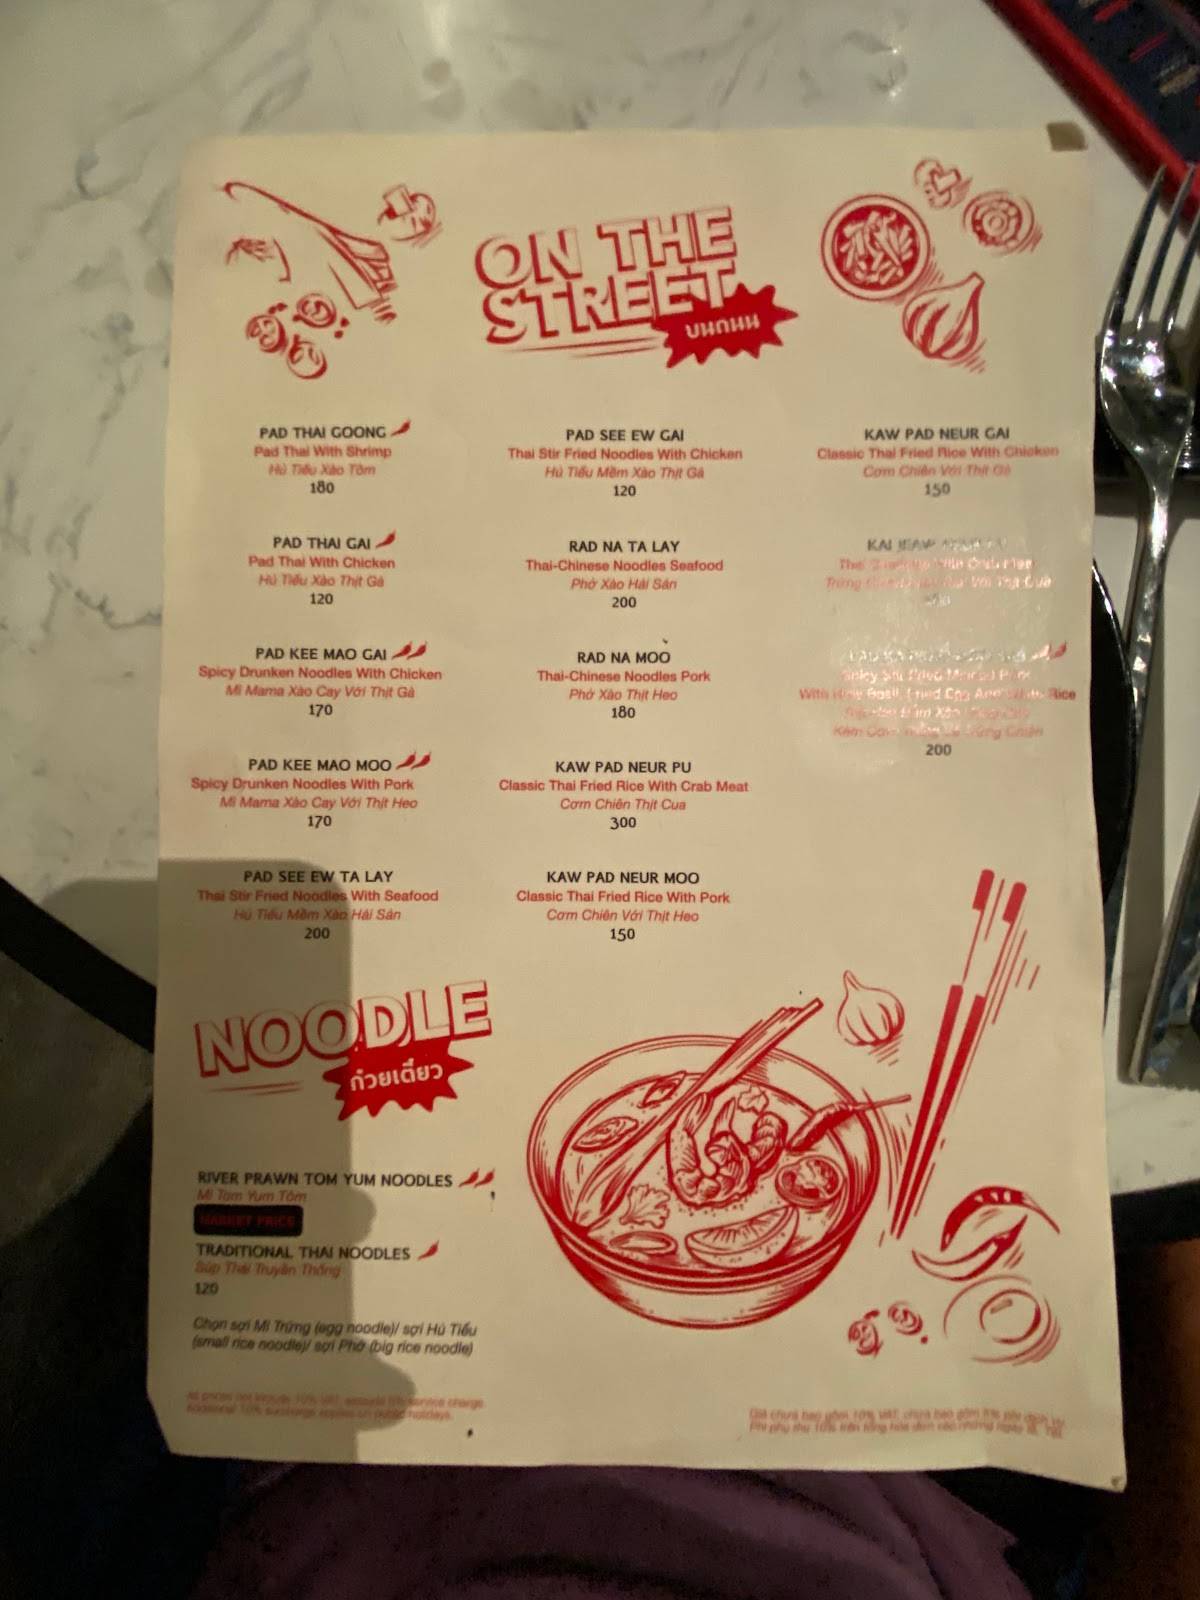 ON THE
STREET
บนถนน
PAD THAI GOONG
Pad Thai With Shrimp
Hủ Tiếu Xào Tôm
180
PAD THAI GAI
Pad Thai With Chicken
Hủ Tiếu Xào Thịt Gà
120
PAD KEE MAO GAI
Spicy Drunken Noodles With Chicken
Mì Mama Xào Cay Với Thịt Gà
170
PAD KEE MAO MOO
Spicy Drunken Noodles With Pork
Mì Mama Xào Cay Với Thịt Heo
170
PAD SEE EW TA LAY
Thai Stir Fried Noodles With Seafood
Hủ Tiếu Mềm Xào Hải Sản
200
PAD SEE EW GAI
Thai Stir Fried Noodles With Chicken
Hủ Tiếu Mềm Xào Thịt Gà
120
RAD NA TA LAY
Thai-Chinese Noodles Seafood
Phở Xào Hải Sản
200
RAD NA MOO
Thai-Chinese Noodles Pork
Phở Xào Thịt Heo
180
KAW PAD NEUR PU
Classic Thai Fried Rice With Crab Meat
Cơm Chiên Thịt Cua
300
KAW PAD NEUR MOO
Classic Thai Fried Rice With Pork
Cơm Chiên Với Thịt Heo
150
KAW PAD NEUR GAI
Classic Thai Fried Rice With Chicken
Cơm Chiên Với Thịt Gà
150
KAI
With Crab Meat
Trứng Với Thịt Cua
Spicy Stir Fried Minced Pork
With Holy Basil, Fried Egg And White Rice
Kèm Cơm Trắng Và Trứng Chiên
200
NOODLE
ก๋วยเตี๋ยว
RIVER PRAWN TOM YUM NOODLES
Mì Tom Yum Tôm
MARKET PRICE
TRADITIONAL THAI NOODLES
Súp Thái Truyền Thống
120
Chọn sợi Mì Trứng (egg noodle)/ sợi Hủ Tiếu
(small rice noodle)/ sợi Phở (big rice noodle)
All prices not include 10% VAT, exclude 5% service charge.
Additional 10% surcharge applies on public holidays.
Giá chưa bao gồm 10% VAT, chưa bao gồm 5% phí dịch vụ
Phí phụ thu 10% trên tổng hóa đơn vào những ngày lễ, Tết.